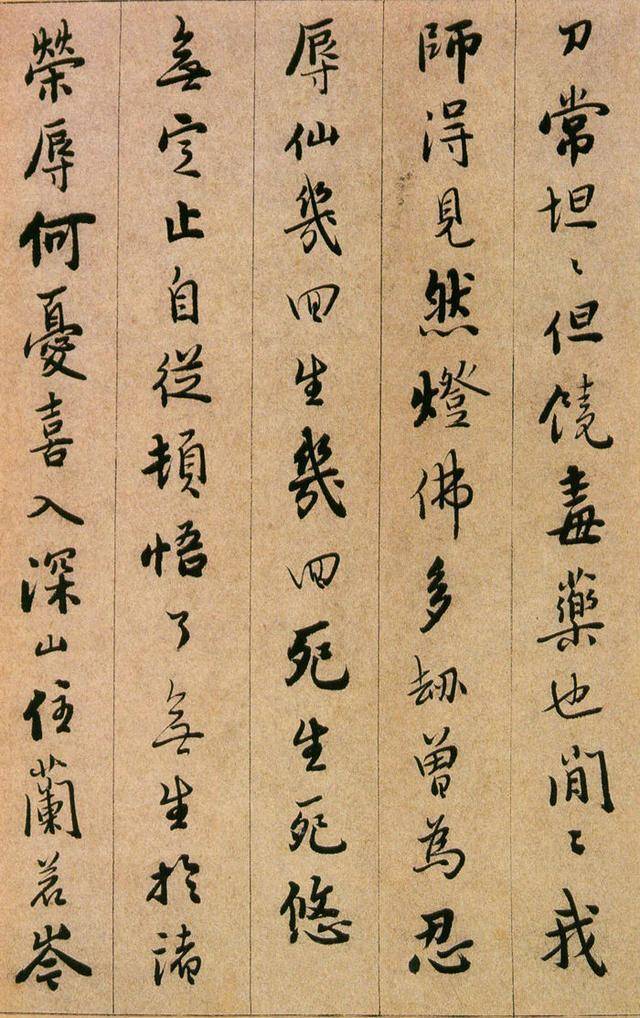 刀常坦〻但饒毒藥也閒〻我
師得見然燈佛多劫曾為忍
辱仙幾回生幾回死生死悠
無定止自從頓悟了無生於諸
榮辱何憂喜入深山住蘭若岑